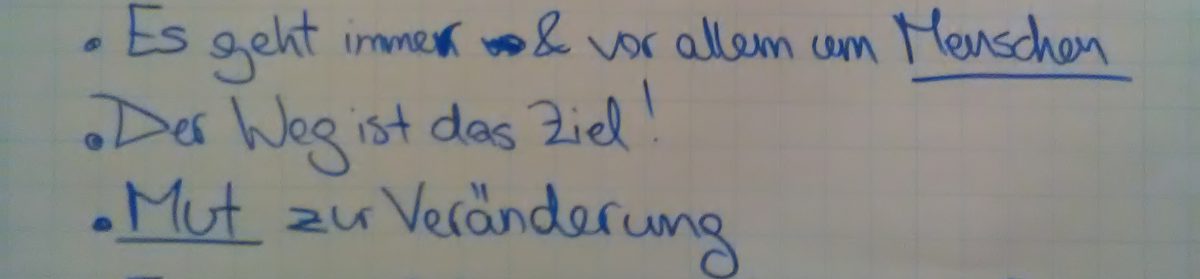 • Es geht immer & vor allem um Menschen
• Der Weg ist das Ziel!
• Mut zur Veränderung